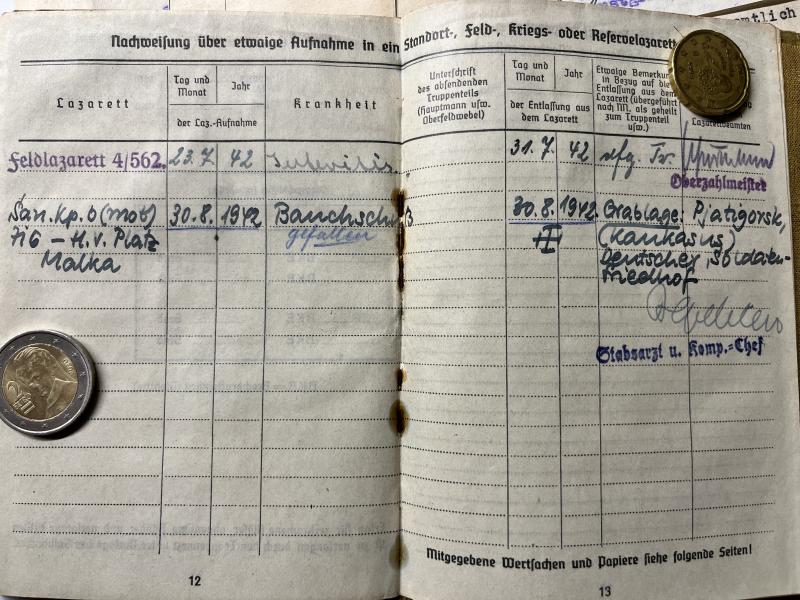 amtlich
Nachweisung über etwaige Aufnahme in ein Standort-, Feld-, Kriegs- oder Reservelazarett
Lazarett
Tag und
Monat
Jahr
der Laz.-Aufnahme
Krankheit
Unterschrift
des absendenden
Truppenteils
(Hauptmann usw.
Oberfeldwebel)
Tag und
Monat
Jahr
der Entlassung aus
dem Lazarett
Etwaige Bemerkung
in Bezug auf die
Entlassung aus dem
Lazarett (übergeführt
nach N., als geheilt
zum Truppenteil
usw.)
Lazarettbeamten
Feldlazarett 4/562. 23.7. 42
31.7. 42 dfg. Tr.
Oberzahlmeister
San. Kp. b (mot) 30.8. 1942 Bauchschuß 30.8. 1942. Grablage: Pjatigorsk,
716 – H.V. Platz gefallen (Kaukasus)
Malka Deutscher Soldaten-
friedhof
Stabsarzt u. Komp.-Chef
Mitgegebene Wertsachen und Papiere siehe folgende Seiten!
12
13